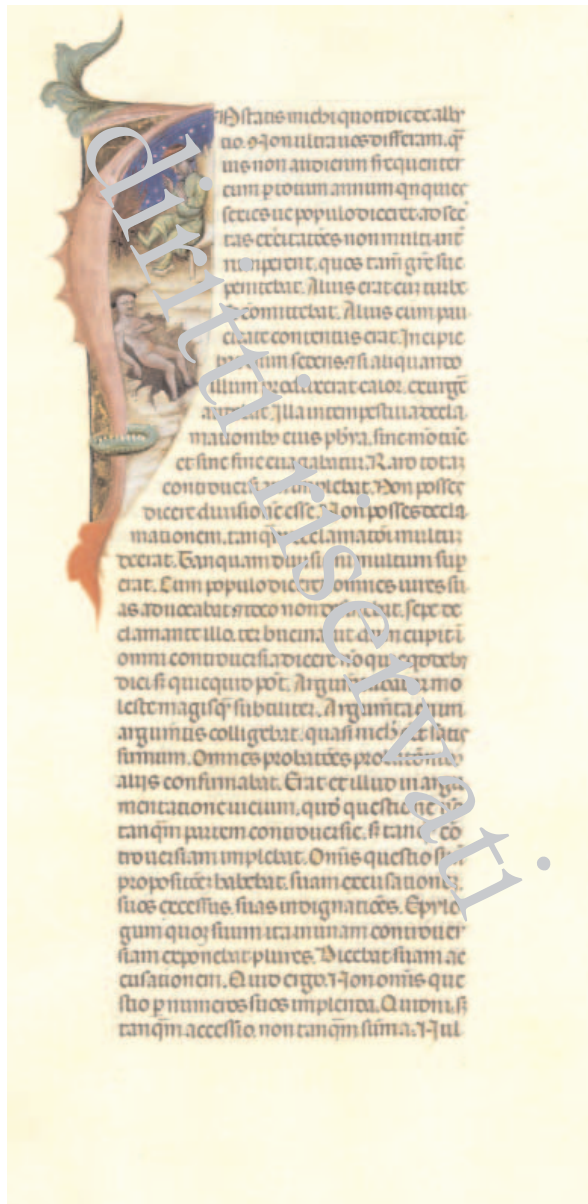 nstatis michi quottidie de albu
tio. Non ultra uos differam. qm̄
uis non audierim frequenter
cum p totum annum qnquies
sexies ue populo diceret ad sec̄
tas exercitatōes non multi
rumperent. quos tam̄ gr̄e suc
penitebat. Alius erat cum turbe
se comittebat. Alius cum pau
citate contentus erat. Incipie
bat enim sedens. si aliquando
illum produxerat calor. exurgē
audebat. Illa intempestiua decla
mationib⁹ eius ph̄ya. sine
et sine fine euagabatur. Raro totaꝫ
controuersiam implebat. Non posses
dicere diuisionē esse. Non posses decla
mationem. tanq̄ declamatōi multuꝫ
deerat. Tanquam diuisioni multum sup̄
erat. Cum populo diceret omnes uires su
as aduocabat. ideo non desinebat. sepe de
clamante illo. ter bucinauit dum cupit ī
omni controuersia dicere nō quicqd debꝫ
dici. sꝫ quicquid pōt. Argumentabatur mo
leste magisq̄ subtiliter. Argumēta enim
argumētis colligebat. quasi nich esset satis
firmum. Omnes probatōes probatōnib⁹
aliis confirmabat. Erat et illud in argu
mentatione uicium. quod questionē nō
tanq̄m partem controuersie. sꝫ tanq̄ cō
trouersiam implebat. Omnis questio suā
propositōeꝫ habebat. suam executionē
suos excessus. suas indignatiōes. Epylo
gum quoꝫ suum ita in unam controuer
siam exponebat plures. Dicebat suam ac
cusationem. Quid ergo. Non omnis que
stio p numeros suos implenda. Quidni. sꝫ
tanq̄m accessio. non tanq̄m sūma. Nul
diritti riservati